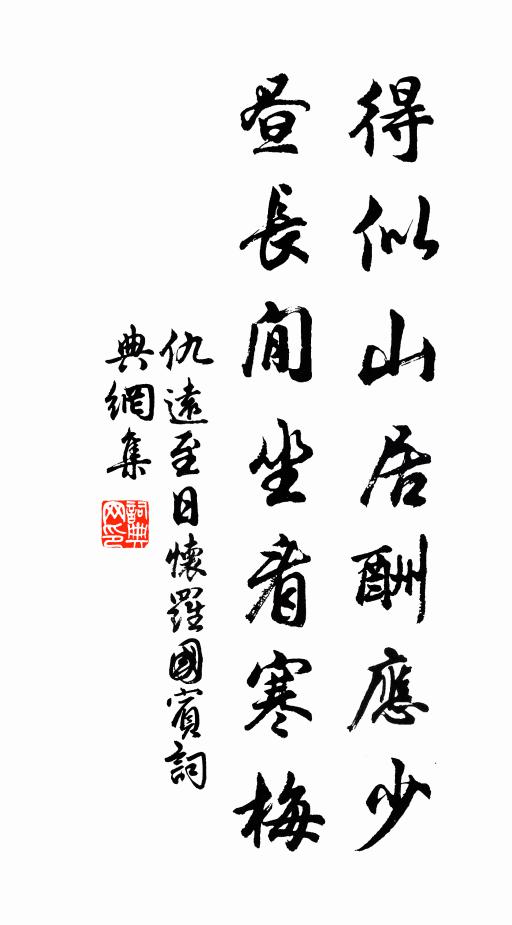 得似山居酬應少
昼長閒坐看寒梅
仇遠至日懷羅國賓詞
典網集
詞典
网印